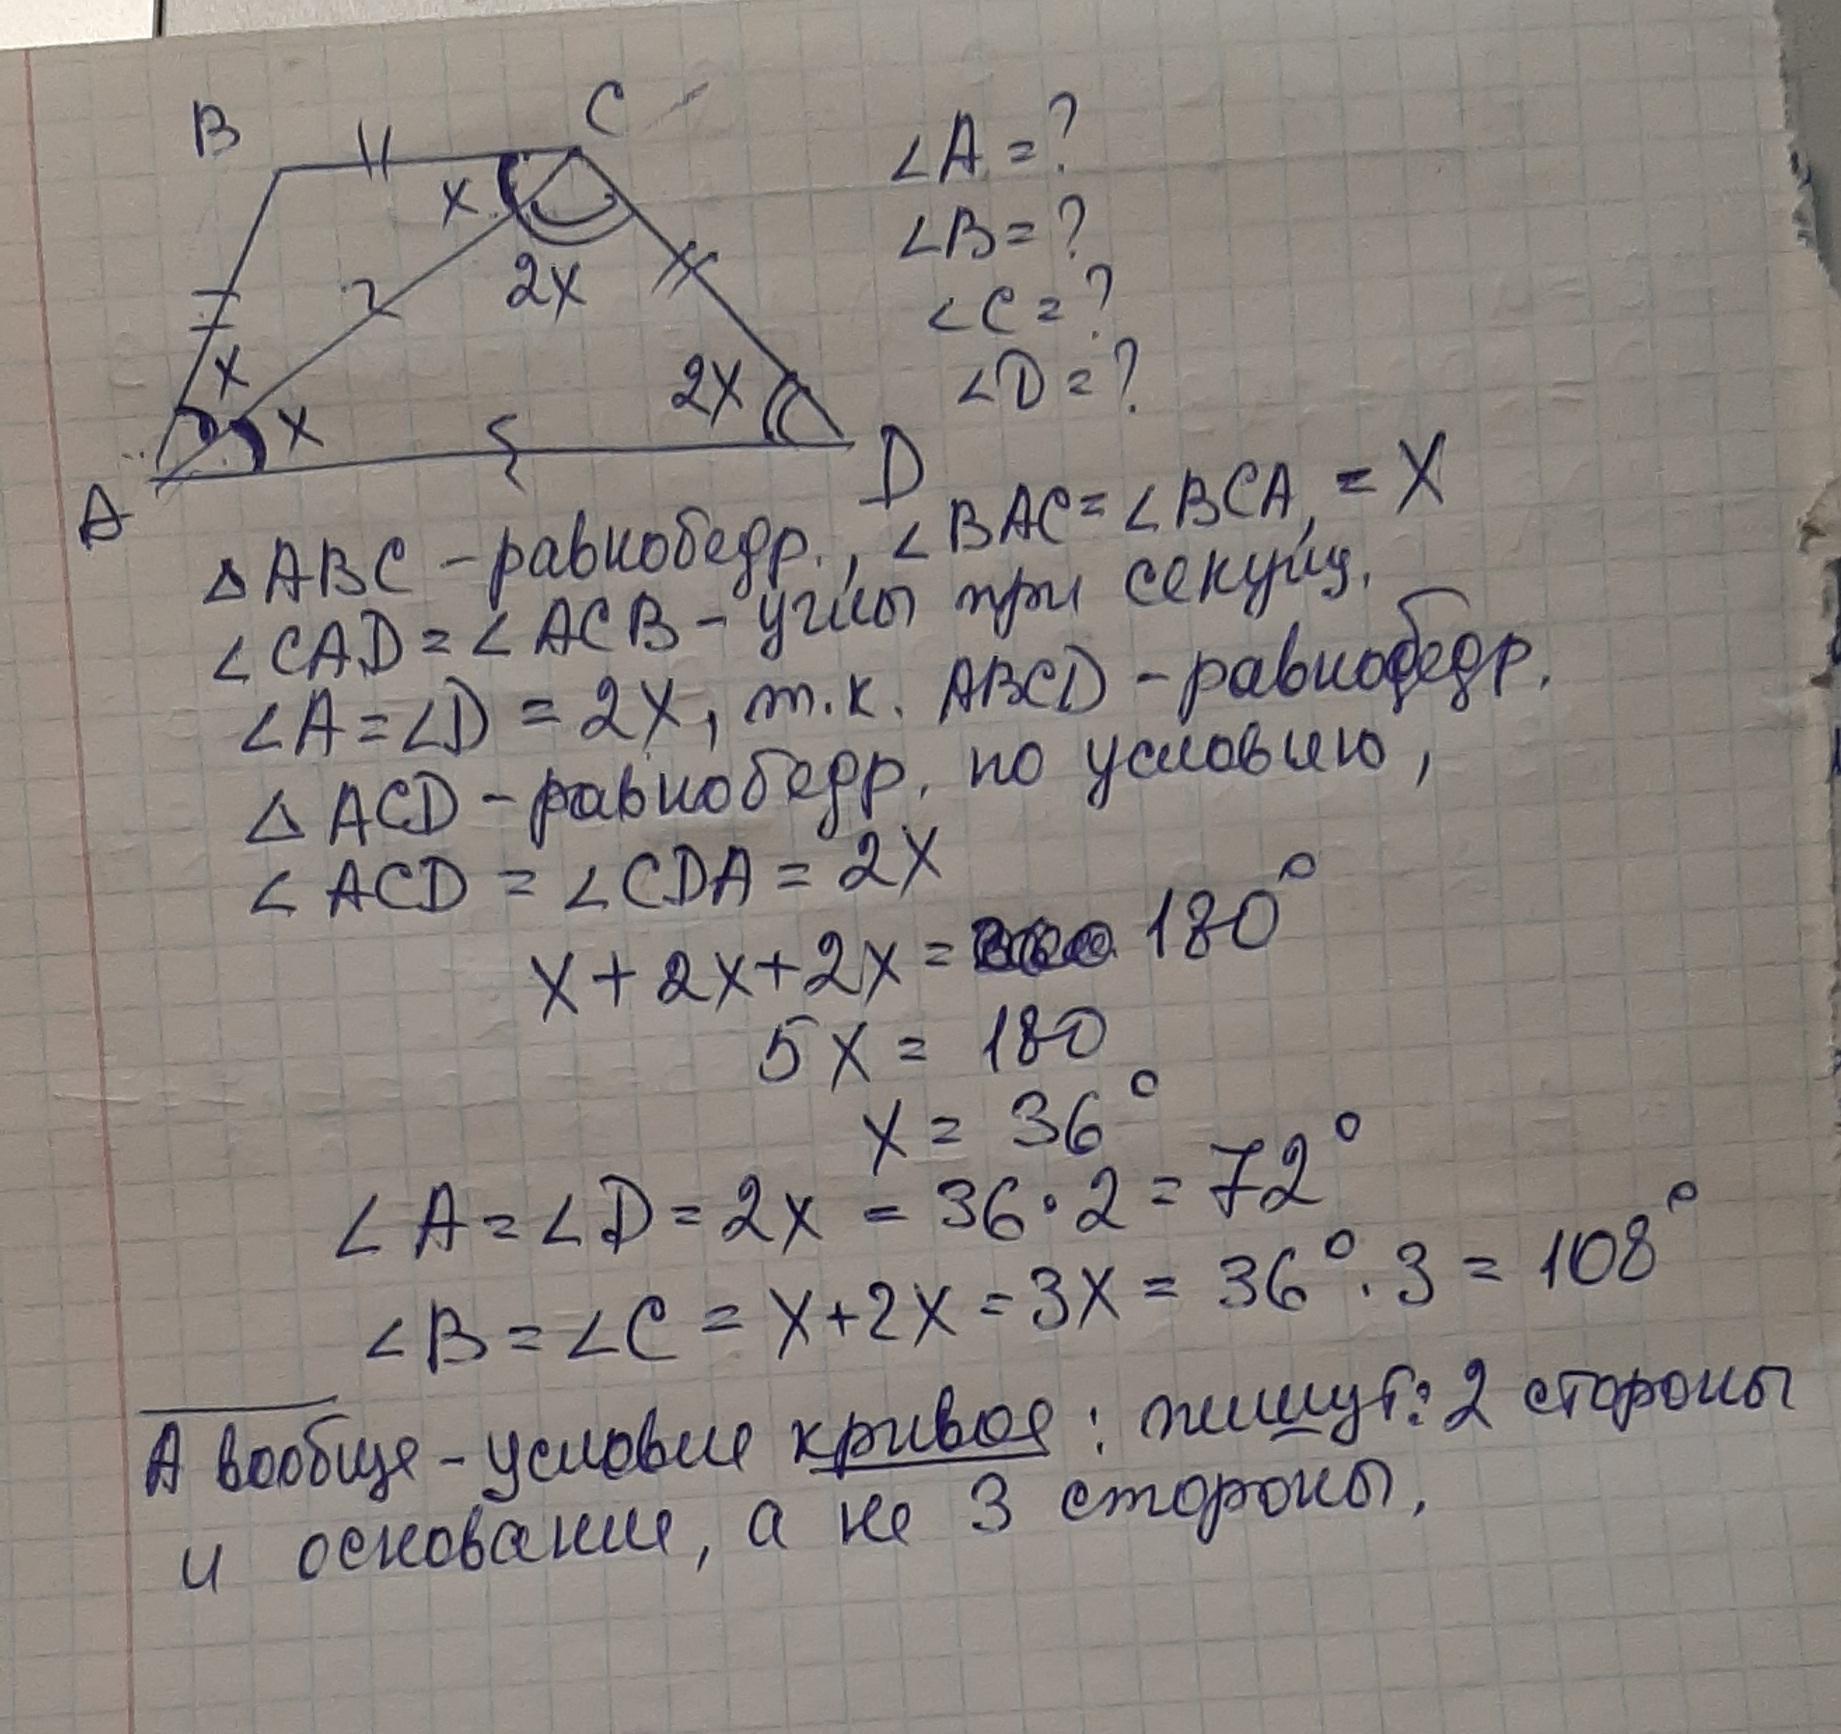 B
C
x
2x
x
x
2x
A
D
∠A = ?
∠B = ?
∠C = ?
∠D = ?
△ABC – равнобедр., ∠BAC = ∠BCA, = X
∠CAD = ∠ACB – углы при секущ.
∠A = ∠D = 2x, т.к. ABCD – равнобедр.
△ ACD – равнобедр. по условию,
∠ACD = ∠CDA = 2x
x + 2x + 2x = 180°
5x = 180
x = 36°
∠A = ∠D = 2x = 36·2 = 72°
∠B = ∠C = x + 2x = 3x = 36°·3 = 108°
А вообще – условие кривое: пишут: 2 стороны
и основание, а не 3 стороны.